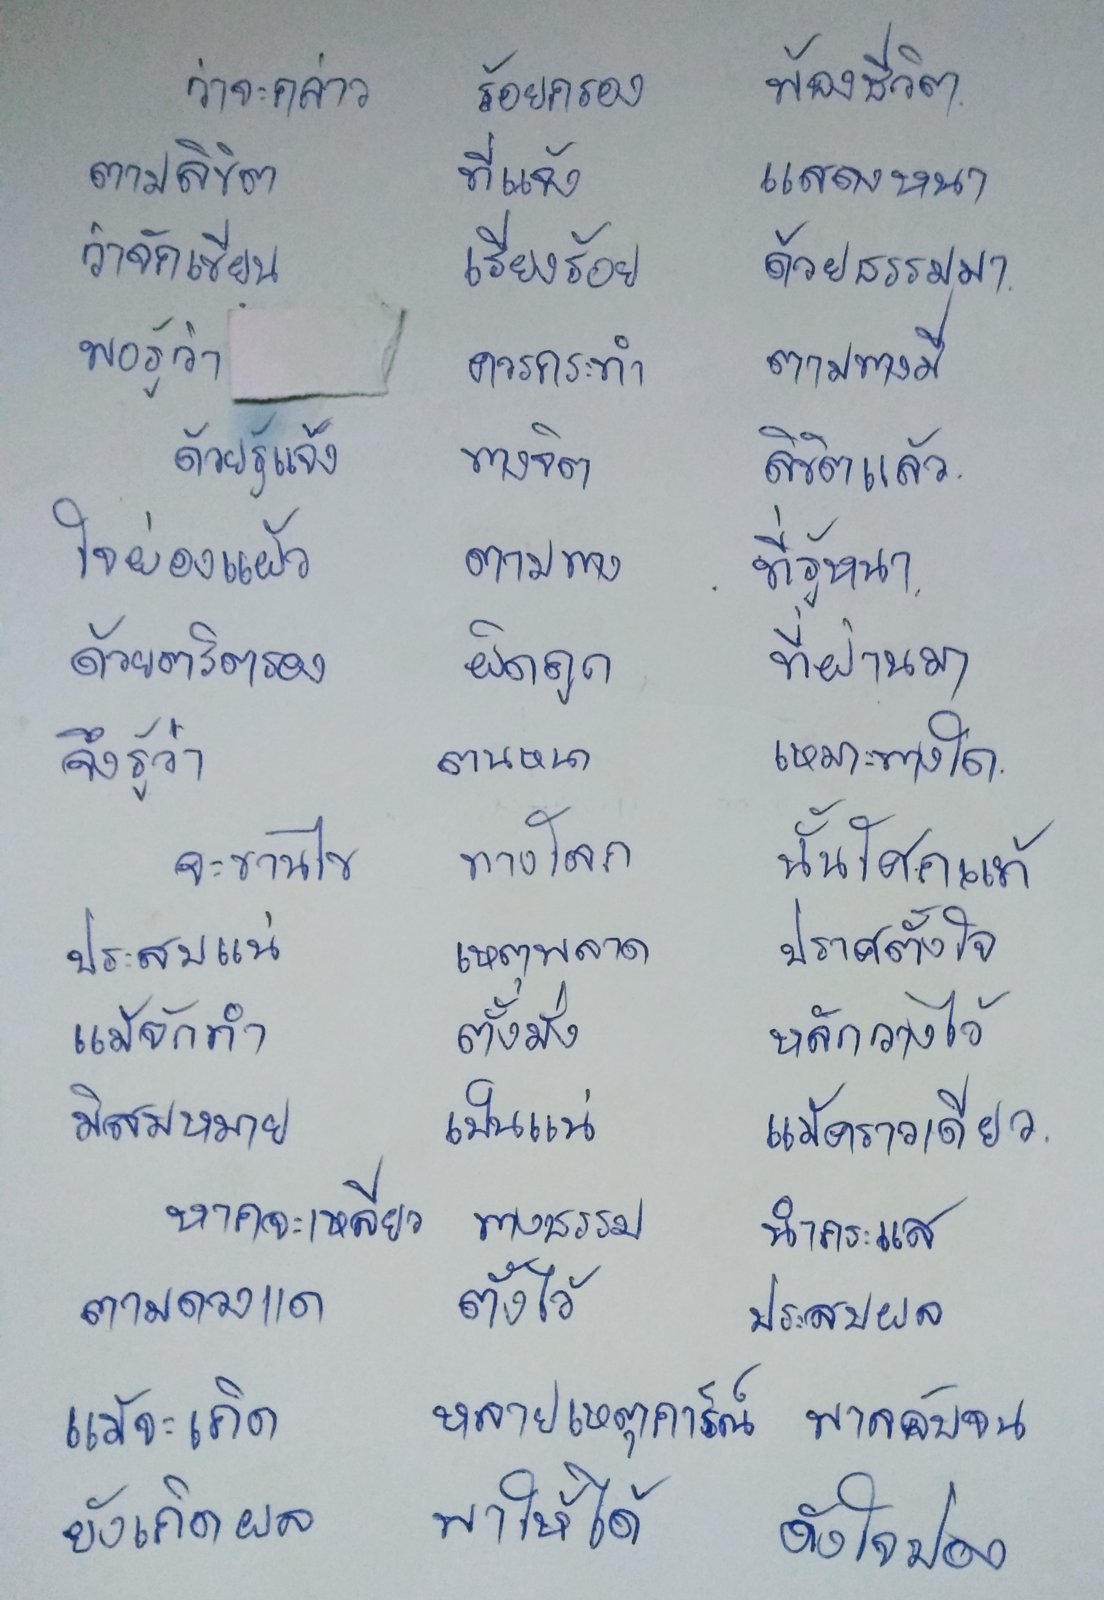 ว่าจะกล่าว ร้อยกรอง พ้องชีวิต
ตามลิขิต ที่แจ้ง แสดงหนา
ว่าจักเขียน เรียงร้อย ด้วยธรรมมา
พอรู้ว่า ควรกระทำ ตามทางมี
ด้วยรู้แจ้ง ทางจิต ลิขิตแล้ว
ใจผ่องแผ้ว ตามทาง ที่รู้หนา
ด้วยตริตรอง ผิดถูก ที่ผ่านมา
จึงรู้ว่า ตนหนา เหมาะทางใด
จะขานไข ทางโลก นั้นโศกแท้
ประสบแน่ เหตุพลาด ปราศตั้งใจ
แม้จักทำ ตั้งมั่ง หลักวางไว้
มิสมหมาย เป็นแน่ แม้คราวเดียว
หากจะเหลียว ทางธรรม นำกระแส
ตามดวงแด ตั้งไว้ ประสบผล
แม้จะเกิด หลายเหตุการ์ณ์ พาลอับจน
ยังเกิดผล พาให้ได้ ดังใจปอง